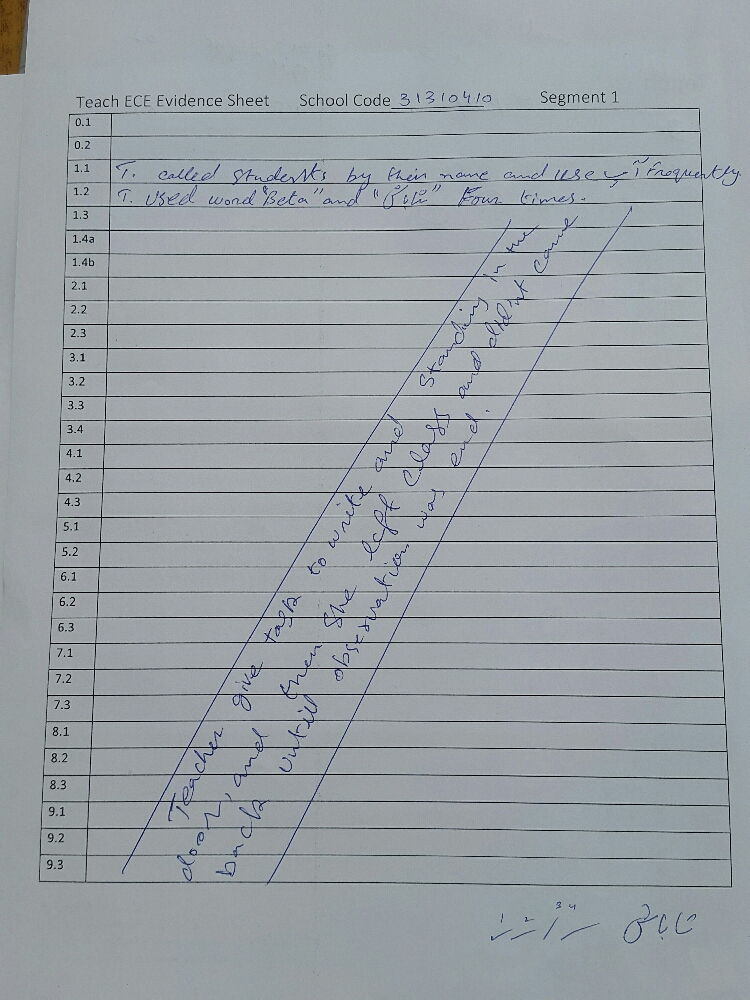 Teach ECE Evidence Sheet School Code 31310410 Segment 1
0.1
0.2
1.1 T. called students by their name and use frequently
1.2 T. used word "Beta" and four times.
1.3
1.4a
1.4b
2.1
2.2
2.3
3.1
3.2
3.3
3.4
4.1
4.2
4.3
5.1
5.2
6.1
6.2
6.3
7.1
7.2
7.3
8.1
8.2
8.3
9.1
9.2
9.3
Teacher give task to write and standing in the
door, and then she left class and didint came
back untill observation was end.
1 2 3 4